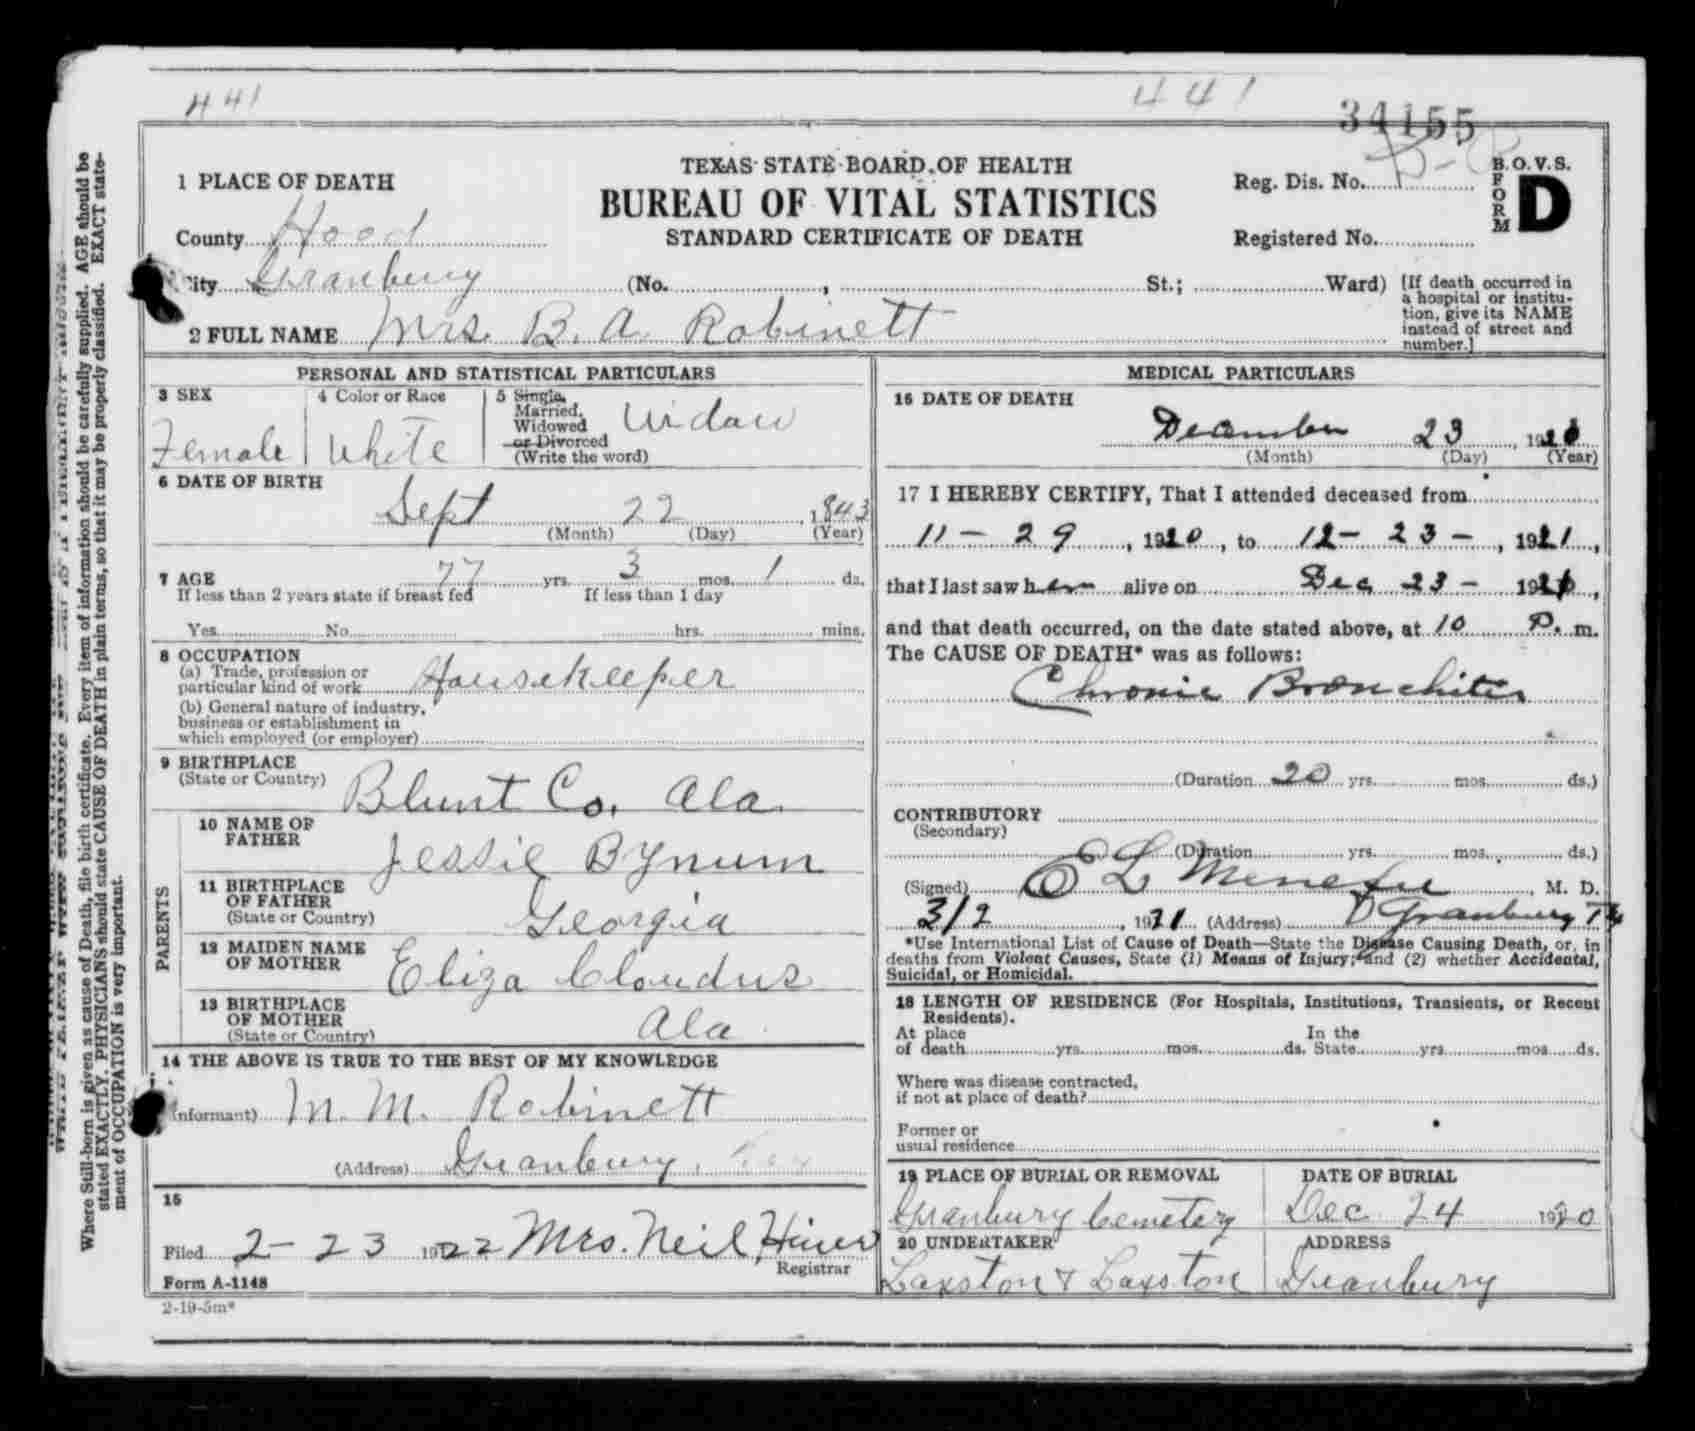 441
441
34155
1 PLACE OF DEATH
TEXAS STATE BOARD OF HEALTH
BUREAU OF VITAL STATISTICS
STANDARD CERTIFICATE OF DEATH
Reg. Dis. No.
B.O.V.S.
FORM D
County Hood
Registered No.
ity Granbury (No. , St.; Ward)
[If death occurred in a hospital or institu-
tion, give its NAME
instead of street and
number.]
2 FULL NAME Mrs. B. A. Robinett
PERSONAL AND STATISTICAL PARTICULARS
3 SEX
Female
4 Color or Race
White
5 Single,
Married,
Widowed
or Divorced
(Write the word)
Widow
6 DATE OF BIRTH
Sept 22, 1843
(Month) (Day) (Year)
7 AGE 77 yrs. 3 mos. 1 ds.
If less than 2 years state if breast fed If less than 1 day
Yes No hrs. mins.
8 OCCUPATION
(a) Trade, profession or
particular kind of work Housekeeper
(b) General nature of industry,
business or establishment in
which employed (or employer)
9 BIRTHPLACE
(State or Country) Blunt Co. Ala.
PARENTS
10 NAME OF
FATHER Jessie Bynum
11 BIRTHPLACE
OF FATHER
(State or Country) Georgia
12 MAIDEN NAME
OF MOTHER Eliza Cloudus
13 BIRTHPLACE
OF MOTHER
(State or Country) Ala.
14 THE ABOVE IS TRUE TO THE BEST OF MY KNOWLEDGE
nformant) M. M. Robinett
(Address) Granbury, Tex
15
Filed 2-23 1922 Mrs. Neil Hiner
Registrar
Form A-1148
2-19-5m*
MEDICAL PARTICULARS
16 DATE OF DEATH
December 23, 1920
(Month) (Day) (Year)
17 I HEREBY CERTIFY, That I attended deceased from
11-29, 1920, to 12-23-, 1921,
that I last saw her alive on Dec 23-
and that death occurred, on the date stated above, at 10 P. m.
The CAUSE OF DEATH* was as follows:
Chronic Bronchitis
(Duration 20 yrs. mos. ds.)
CONTRIBUTORY
(Secondary)
(Duration yrs. mos. ds.)
(Signed) E L Menefee, M. D.
3/2, 1921 (Address) Granbury Tx
*Use International List of Cause of Death—State the Disease Causing Death, or, in
deaths from Violent Causes, State (1) Means of Injury; and (2) whether Accidental,
Suicidal, or Homicidal.
18 LENGTH OF RESIDENCE (For Hospitals, Institutions, Transients, or Recent
Residents).
At place In the
of death yrs. mos. ds. State yrs. mos. ds.
Where was disease contracted,
if not at place of death?
Former or
usual residence
19 PLACE OF BURIAL OR REMOVAL
Granbury Cemetery
DATE OF BURIAL
Dec 24 1920
20 UNDERTAKER
Laxston & Laxston
ADDRESS
Granbury
Where Still-born is given as cause of Death, file birth certificate. Every item of information should be carefully supplied. AGE should be
stated EXACTLY. PHYSICIANS should state CAUSE OF DEATH in plain terms, so that it may be properly classified. EXACT state-
ment of OCCUPATION is very important.